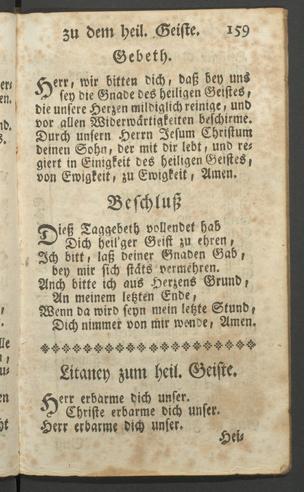 zu dem heil. Geiste. 159
Gebeth.
Herr, wir bitten dich, daß bey uns
sey die Gnade des heiligen Geistes,
die unsere Herzen mildiglich reinige, und
vor allen Widerwärtigkeiten beschirme.
Durch unsern Herrn Jesum Christum
deinen Sohn, der mit dir lebt, und re-
giert in Einigkeit des heiligen Geistes,
von Ewigkeit, zu Ewigkeit, Amen.
Beschluß
Dieß Taggebeth vollendet hab
Dich heil'ger Geist zu ehren,
Ich bitt, laß deiner Gnaden Gab,
bey mir sich stäts vermehren.
Auch bitte ich aus Herzens Grund,
An meinem letzten Ende,
Wenn da wird seyn mein letzte Stund,
Dich nimmer von mir wende, Amen.
Litaney zum heil. Geiste.
Herr erbarme dich unser.
Christe erbarme dich unser.
Herr erbarme dich unser.
Hei-